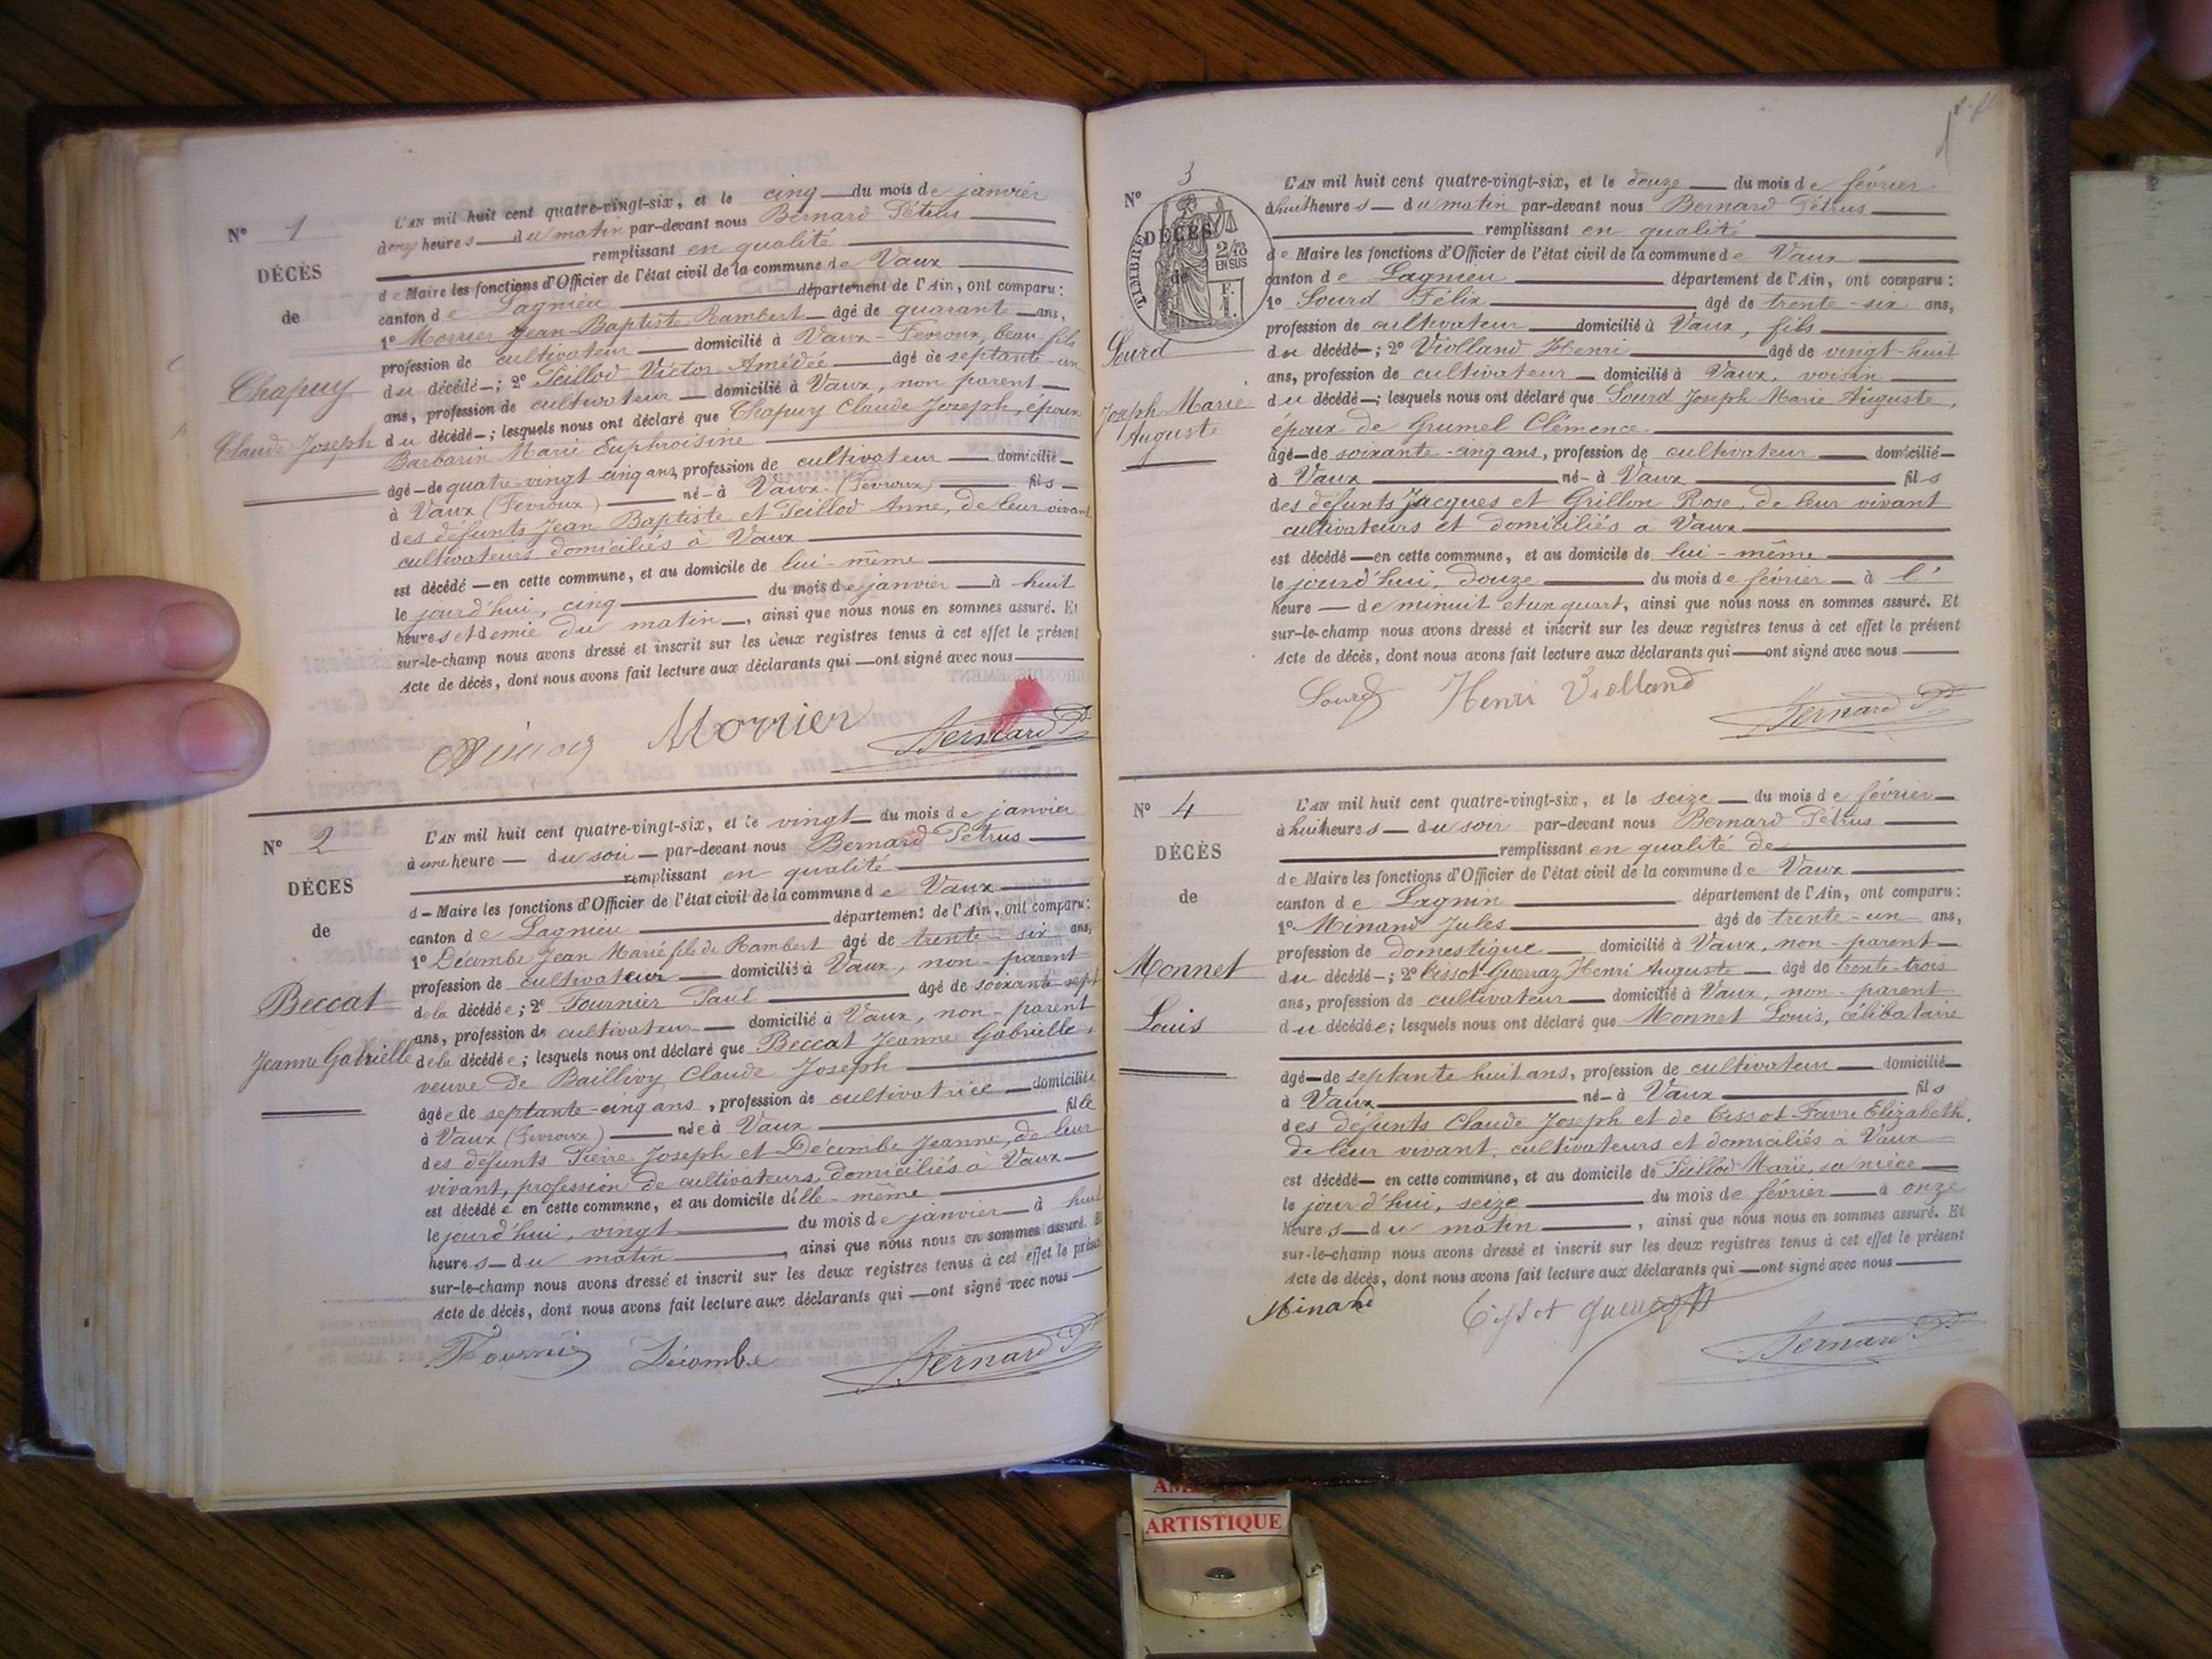 N° 1
DÉCÈS
de
Chapuy
Claude Joseph
L'AN mil huit cent quatre-vingt-six, et le cinq du mois de janvier
à onze heures du matin par-devant nous Bernard Pétrus
remplissant en qualité
de Maire les fonctions d'Officier de l'état civil de la commune de Vaux
canton de Lagnieu département de l'Ain, ont comparu :
1° Morrier Jean-Baptiste Rambert âgé de quarante ans,
profession de cultivateur domicilié à Vaux-Fevroux, beau-fils
du décédé ; 2° Peillod Victor Amédée âgé de septante-un
ans, profession de cultivateur domicilié à Vaux, non parent
du décédé ; lesquels nous ont déclaré que Chapuy Claude Joseph, époux
Barbarin Marie Euphroisine
âgé de quatre-vingt-cinq ans, profession de cultivateur domicilié
à Vaux (Fevroux) né à Vaux (Fevroux) fils
des défunts Jean Baptiste et Peillod Anne, de leur vivant
cultivateurs domiciliés à Vaux
est décédé en cette commune, et au domicile de lui-même
le jourd'hui, cinq du mois de janvier à huit
heures et demie du matin, ainsi que nous nous en sommes assuré. Et
sur-le-champ nous avons dressé et inscrit sur les deux registres tenus à cet effet le présent
Acte de décès, dont nous avons fait lecture aux déclarants qui ont signé avec nous
Morrier Bernard P.
N° 2
DÉCÈS
de
Beccat
Jeanne Gabrielle
L'AN mil huit cent quatre-vingt-six, et le vingt du mois de janvier
à une heure du soir par-devant nous Bernard Pétrus
remplissant en qualité
d Maire les fonctions d'Officier de l'état civil de la commune de Vaux
canton de Lagnieu département de l'Ain, ont comparu :
1° Décombe Jean Marie fils de Rambert âgé de trente-six ans,
profession de cultivateur domicilié à Vaux, non-parent
de la décédée ; 2° Fournier Paul âgé de soixante-sept
ans, profession de cultivateur domicilié à Vaux, non-parent
de la décédée ; lesquels nous ont déclaré que Beccat Jeanne Gabrielle,
veuve de Baillivy Claude Joseph
âgée de septante-cinq ans, profession de cultivatrice domiciliée
à Vaux (Fevroux) née à Vaux fille
des défunts Pierre Joseph et Décombe Jeanne, de leur
vivant, profession de cultivateurs, domiciliés à Vaux
est décédée en cette commune, et au domicile d'elle-même
le jourd'hui, vingt du mois de janvier à huit
heures du matin, ainsi que nous nous en sommes assuré. Et
sur-le-champ nous avons dressé et inscrit sur les deux registres tenus à cet effet le présent
Acte de décès, dont nous avons fait lecture aux déclarants qui ont signé avec nous
Fournier Décombe Bernard P.
N° 3
DÉCÈS
de
TIMBRE
2/10
EN SUS
F.
1.
Lourd
Joseph Marie
Auguste
L'AN mil huit cent quatre-vingt-six, et le douze du mois de février
à huit heures du matin par-devant nous Bernard Pétrus
remplissant en qualité
de Maire les fonctions d'Officier de l'état civil de la commune de Vaux
canton de Lagnieu département de l'Ain, ont comparu :
1° Lourd Félix âgé de trente-six ans,
profession de cultivateur domicilié à Vaux, fils
du décédé ; 2° Violland Henri âgé de vingt-huit
ans, profession de cultivateur domicilié à Vaux, voisin
du décédé ; lesquels nous ont déclaré que Lourd Joseph Marie Auguste,
époux de Grumel Clémence
âgé de soixante-cinq ans, profession de cultivateur domicilié
à Vaux né à Vaux fils
des défunts Jacques et Grillon Rose, de leur vivant
cultivateurs et domiciliés à Vaux
est décédé en cette commune, et au domicile de lui-même
le jourd'hui, douze du mois de février à l'
heure de minuit et un quart, ainsi que nous nous en sommes assuré. Et
sur-le-champ nous avons dressé et inscrit sur les deux registres tenus à cet effet le présent
Acte de décès, dont nous avons fait lecture aux déclarants qui ont signé avec nous
Lourd Henri Violland Bernard P.
N° 4
DÉCÈS
de
Monnet
Louis
L'AN mil huit cent quatre-vingt-six, et le seize du mois de février
à huit heures du soir par-devant nous Bernard Pétrus
remplissant en qualité de
de Maire les fonctions d'Officier de l'état civil de la commune de Vaux
canton de Lagnin département de l'Ain, ont comparu :
1° Minand Jules âgé de trente-un ans,
profession de domestique domicilié à Vaux, non-parent
du décédé ; 2° Tissot Guerraz Henri Auguste âgé de trente-trois
ans, profession de cultivateur domicilié à Vaux, non-parent
du décédée ; lesquels nous ont déclaré que Monnet Louis, célibataire
âgé de septante huit ans, profession de cultivateur domicilié
à Vaux né à Vaux fils
des défunts Claude Joseph et de Tissot-Favre Elizabeth,
de leur vivant, cultivateurs et domiciliés à Vaux
est décédé en cette commune, et au domicile de Peillod Marie, sa nièce
le jourd'hui, seize du mois de février à onze
heures du matin, ainsi que nous nous en sommes assuré. Et
sur-le-champ nous avons dressé et inscrit sur les deux registres tenus à cet effet le présent
Acte de décès, dont nous avons fait lecture aux déclarants qui ont signé avec nous
Minand Tissot Bernard P.
ARTISTIQUE